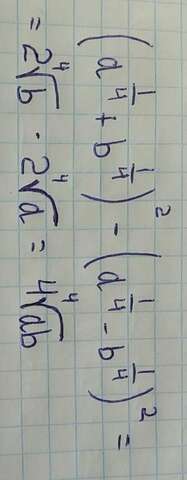 (a^{1/4} + b^{1/4})² - (a^{1/4} - b^{1/4})² =
= 2⁴√b · 2⁴√a = 4⁴√ab